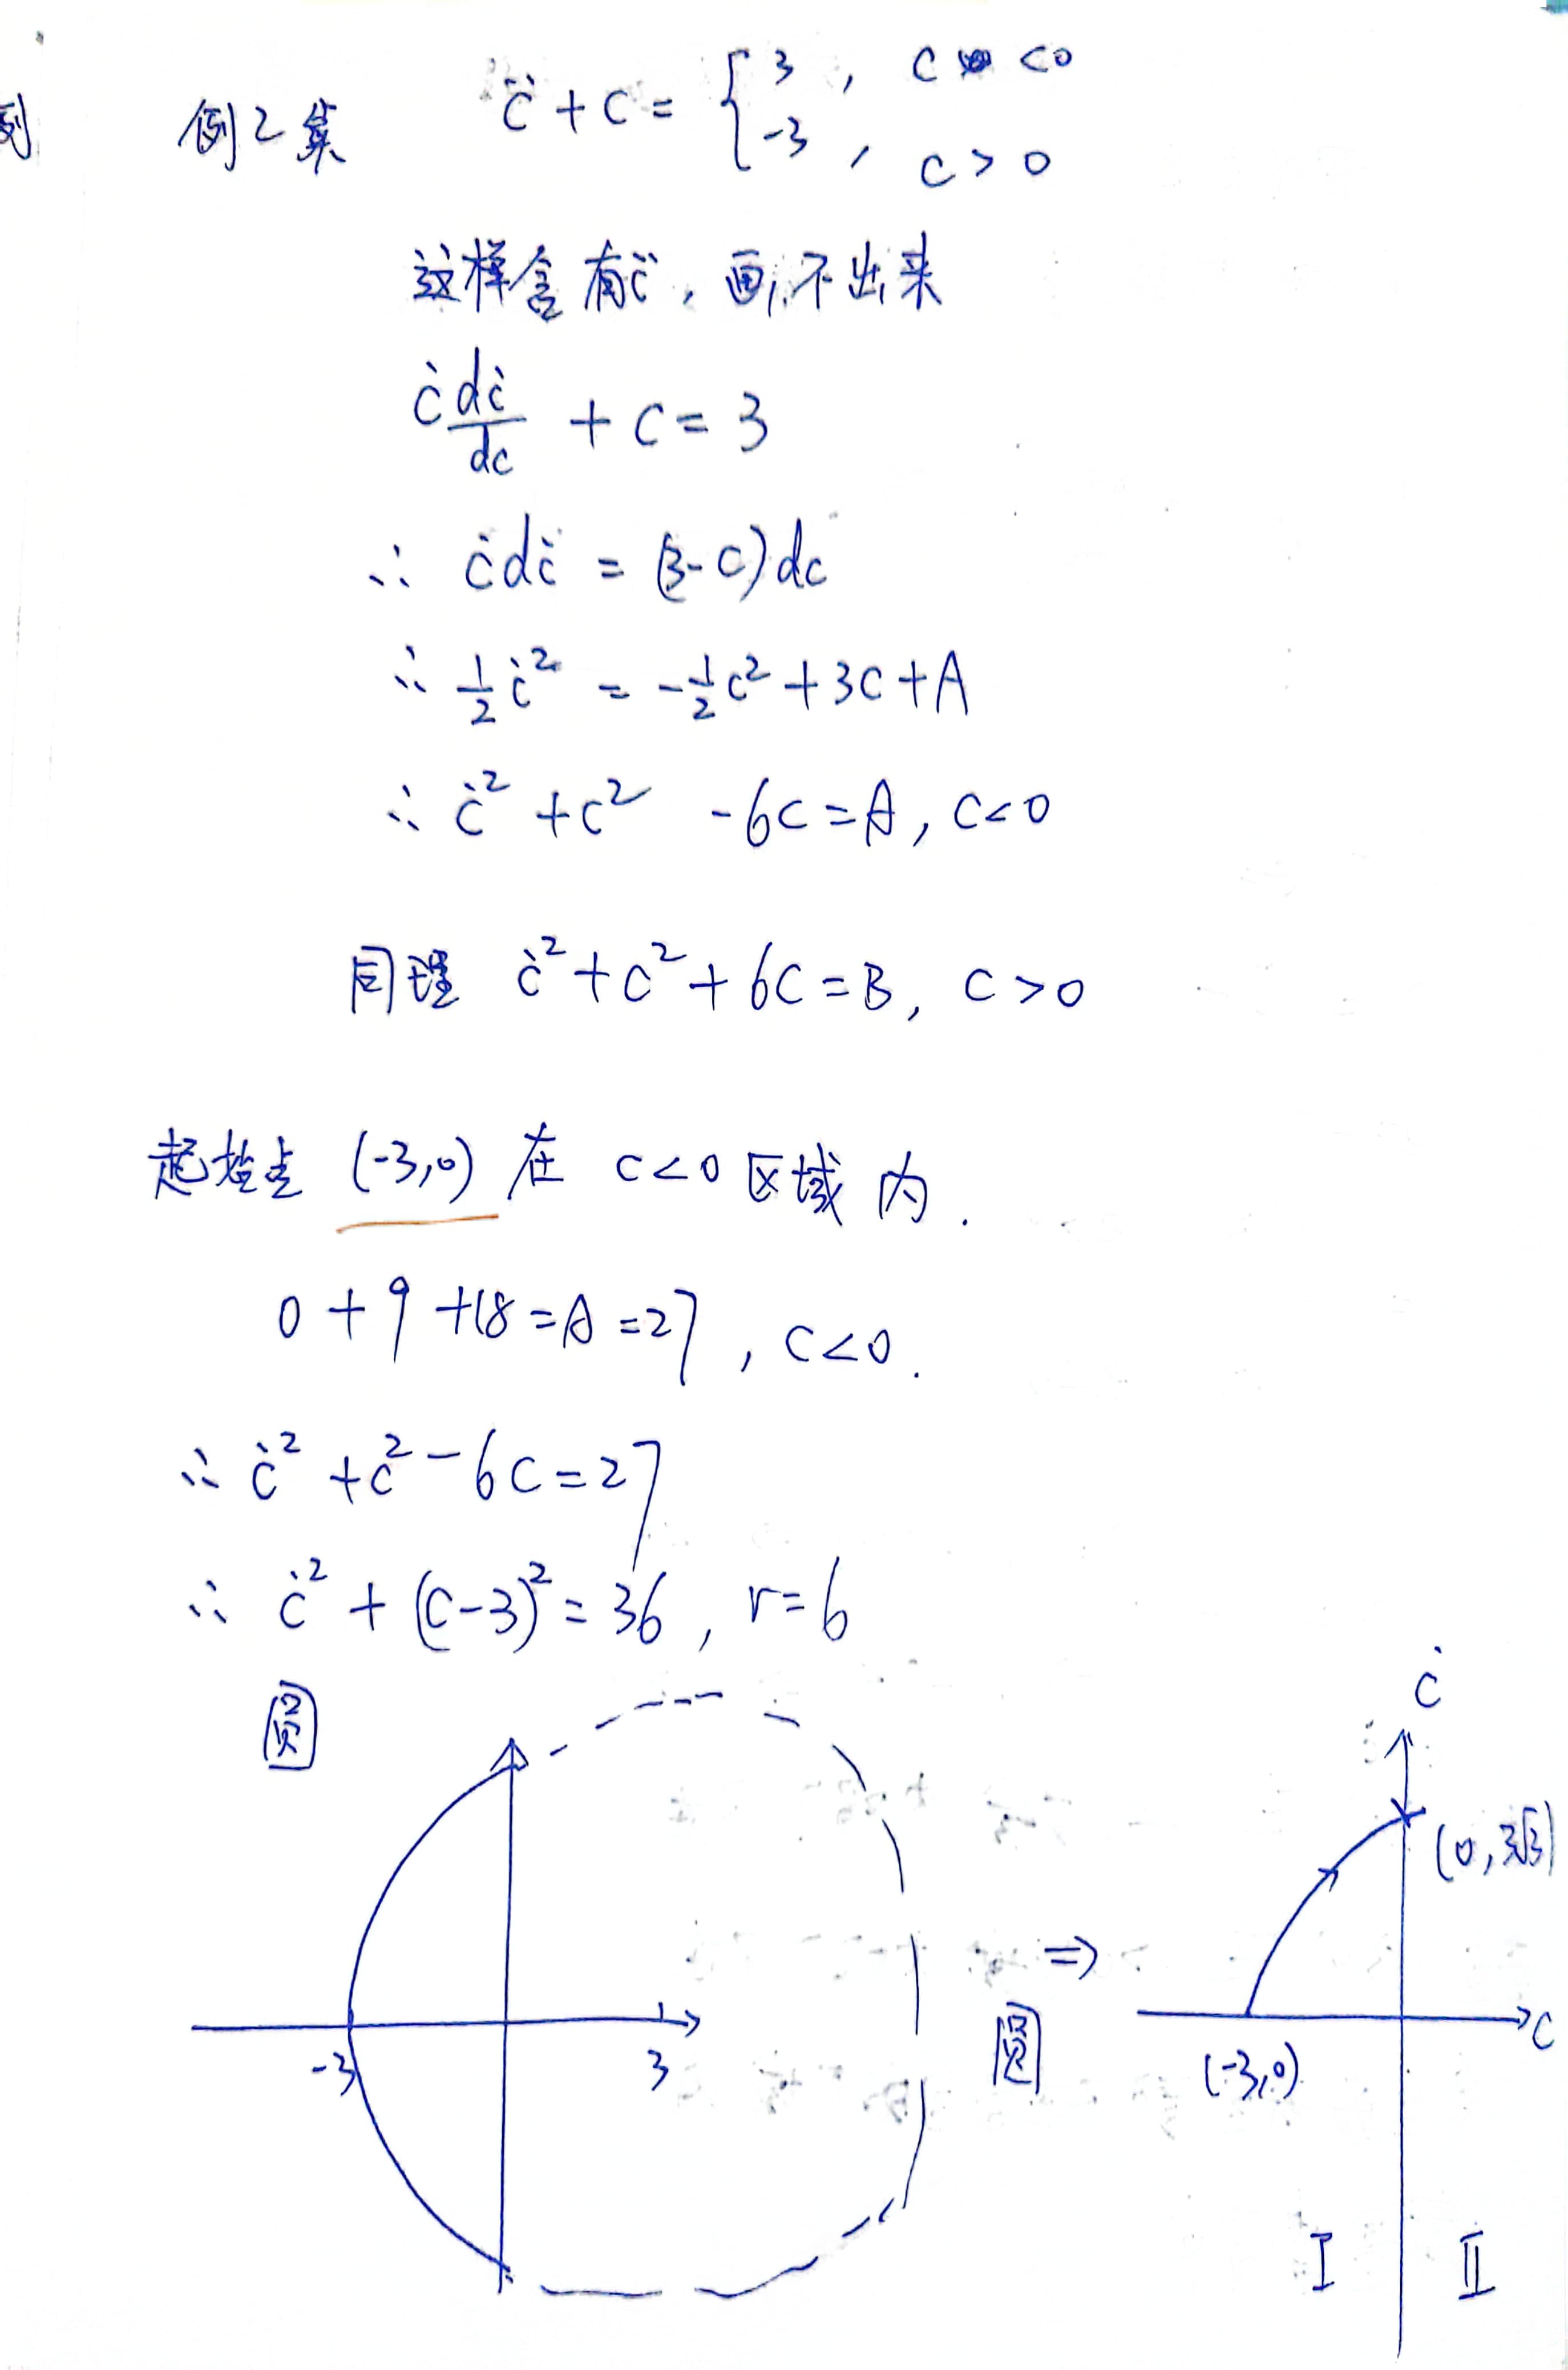 例2 算 c̈ + c = { 3 , c <0
-3 , c > 0
这样含有c̈, 画不出来
ċ dċ/dc + c = 3
∴ ċdċ = (3-c)dc
∴ 1/2 ċ² = -1/2 c² + 3c + A
∴ ċ² + c² - 6c = A, c<0
同理 ċ² + c² + 6c = B, c > 0
起始点 (-3,0) 在 c<0 区域内.
0 + 9 + 18 = A = 27, c<0.
∴ ċ² + c² - 6c = 27
∴ ċ² + (c-3)² = 36, r = 6
圆
-3
3
⇒
圆
ċ
(0, 3√3)
c
(-3,0)
I
II